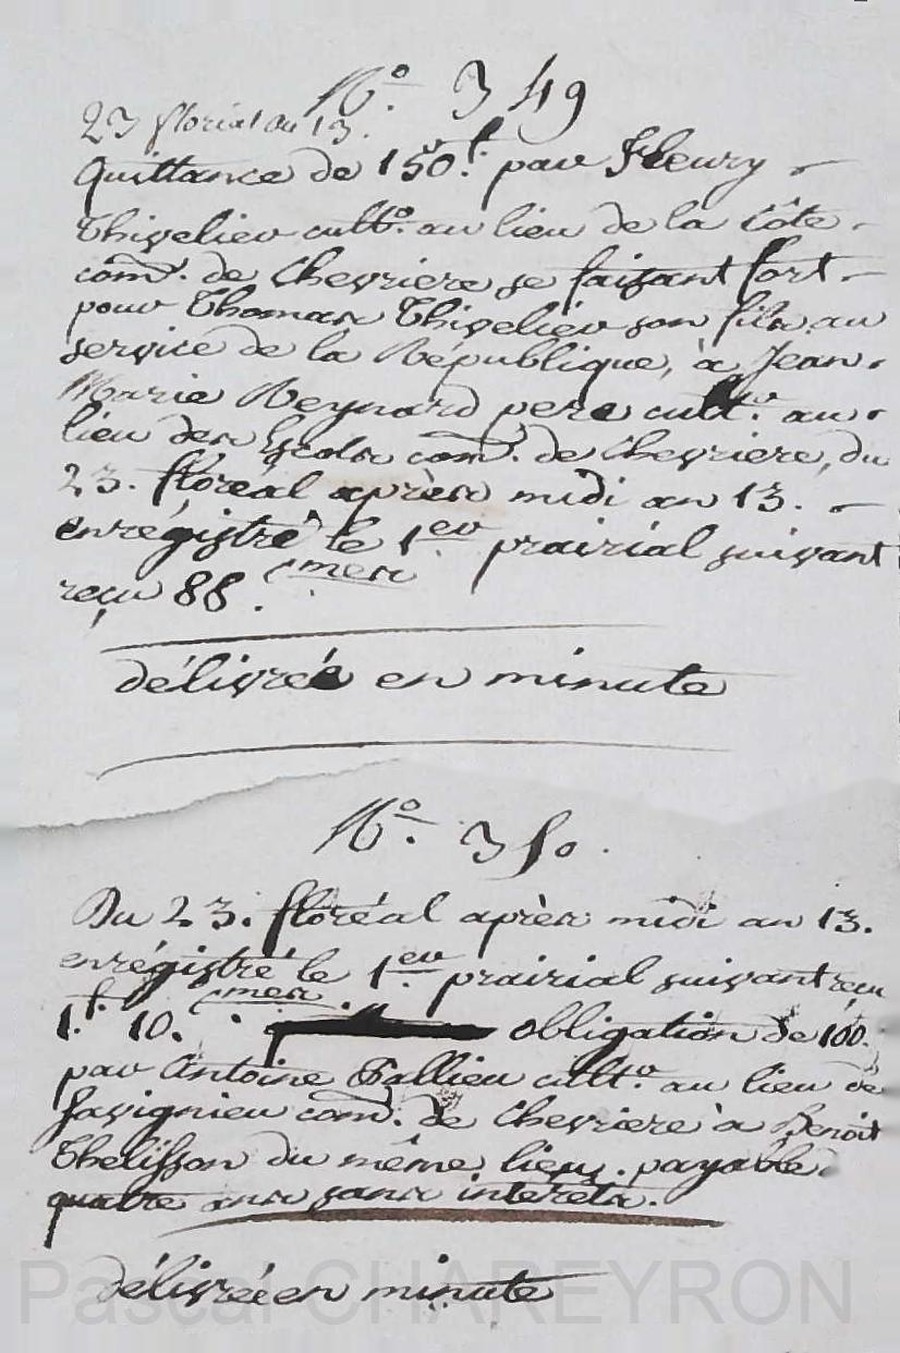 N.° 349
23 floréal an 13.
Quittance de 150.f par Fleury
Thivelier cult.r au lieu de la Côte
com.e de Chevriere se faisant fort
pour Thomas Thivelier son fils au
service de la République, à Jean
Marie Reynard pere cult.r au
lieu des com.e de Chevriere, du
23. floréal après midi an 13.
enrégistré le 1.er prairial suivant
reçu 88. c.mes
délivrée en minute
N.° 350.
Du 23. floréal après midi an 13.
enrégistré le 1.er prairial suivant reçu
1.f 10. c.mes obligation de 100.
par Antoine cult.r au lieu de
com.e de Chevriere à Benoit
Thelisson du même lieu, payable
quatre ans sans intérêts.
délivrée en minute
Pascal CHAREYRON